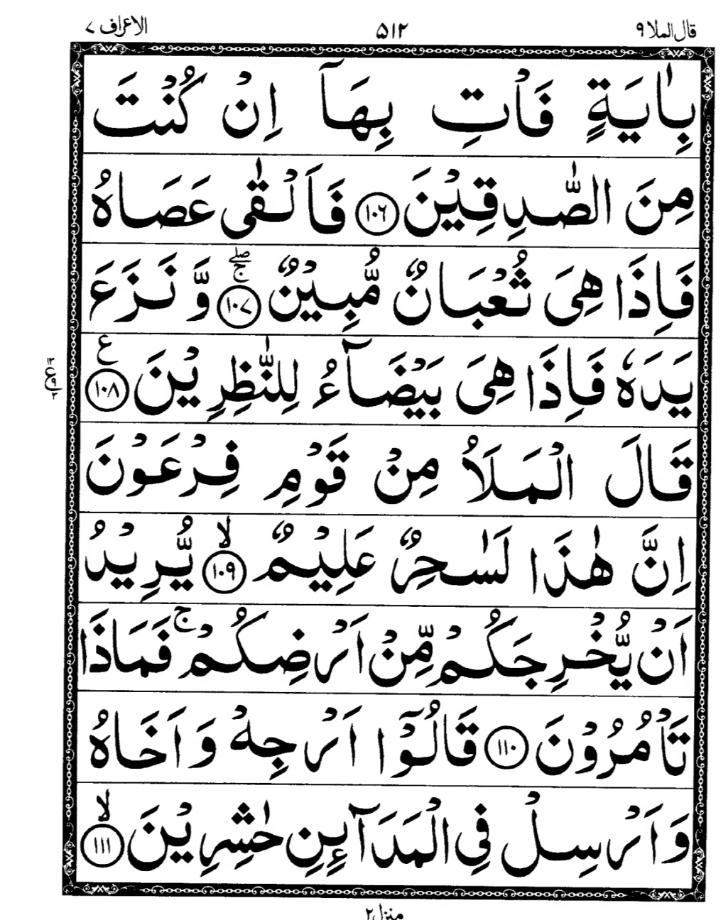 قال الملا ۹ ۵۱۲ الاعراف ۷
بِاٰيَةٍ فَاْتِ بِهَاۤ اِنْ كُنْتَ
مِنَ الصّٰدِقِيْنَ ۝۱۰۶ فَاَلْقٰى عَصَاهُ
فَاِذَا هِىَ ثُعْبَانٌ مُّبِيْنٌ ۝۱۰۷ ۚۖ وَّ نَزَعَ
يَدَهٗ فَاِذَا هِىَ بَيْضَآءُ لِلنّٰظِرِيْنَ ۝۱۰۸ ع
قَالَ الْمَلَاُ مِنْ قَوْمِ فِرْعَوْنَ
اِنَّ هٰذَا لَسٰحِرٌ عَلِيْمٌ ۝۱۰۹ ۙ يُّرِيْدُ
اَنْ يُّخْرِجَكُمْ مِّنْ اَرْضِكُمْ ۚ فَمَاذَا
تَاْمُرُوْنَ ۝۱۱۰ قَالُوْۤا اَرْجِهْ وَ اَخَاهُ
وَ اَرْسِلْ فِى الْمَدَآئِنِ حٰشِرِيْنَ ۝۱۱۱ ۙ
منزل ۲